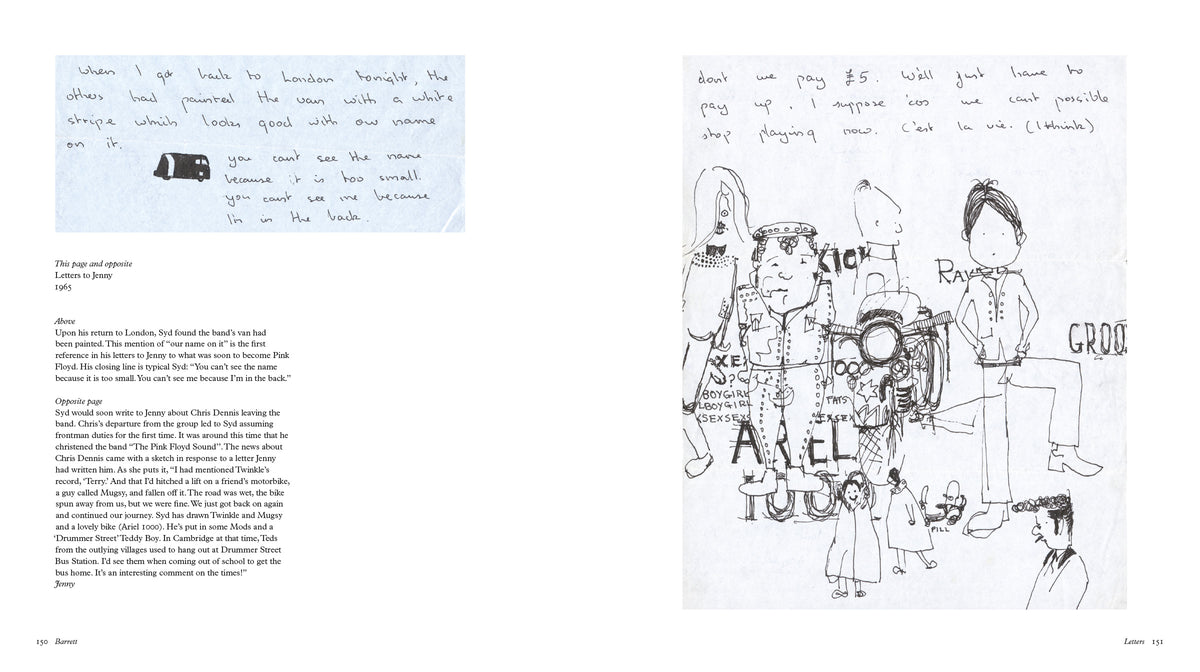 when I got back to London tonight, the
others had painted the van with a white
stripe which looks good with our name
on it.
you can't see the name
because it is too small.
you can't see me because
I'm in the back.
This page and opposite
Letters to Jenny
1965
Above
Upon his return to London, Syd found the band's van had
been painted. This mention of “our name on it” is the first
reference in his letters to Jenny to what was soon to become Pink
Floyd. His closing line is typical Syd: “You can't see the name
because it is too small. You can't see me because I'm in the back.”
Opposite page
Syd would soon write to Jenny about Chris Dennis leaving the
band. Chris's departure from the group led to Syd assuming
frontman duties for the first time. It was around this time that he
christened the band “The Pink Floyd Sound”. The news about
Chris Dennis came with a sketch in response to a letter Jenny
had written him. As she puts it, “I had mentioned Twinkle's
record, ‘Terry.’ And that I'd hitched a lift on a friend's motorbike,
a guy called Mugsy, and fallen off it. The road was wet, the bike
spun away from us, but we were fine. We just got back on again
and continued our journey. Syd has drawn Twinkle and Mugsy
and a lovely bike (Ariel 1000). He's put in some Mods and a
‘Drummer Street’ Teddy Boy. In Cambridge at that time, Teds
from the outlying villages used to hang out at Drummer Street
Bus Station. I'd see them when coming out of school to get the
bus home. It's an interesting comment on the times!”
Jenny
150 Barrett
dont we pay £5. We'll just have to
pay up. I suppose 'cos we cant possible
stop playing now. C'est la vie. (I think)
RAVE
GROO
BOYGIRL
LBOYGIRL
SEXSEX
FATS
SEXSEX
ARIEL
1000
PILL
Letters 151